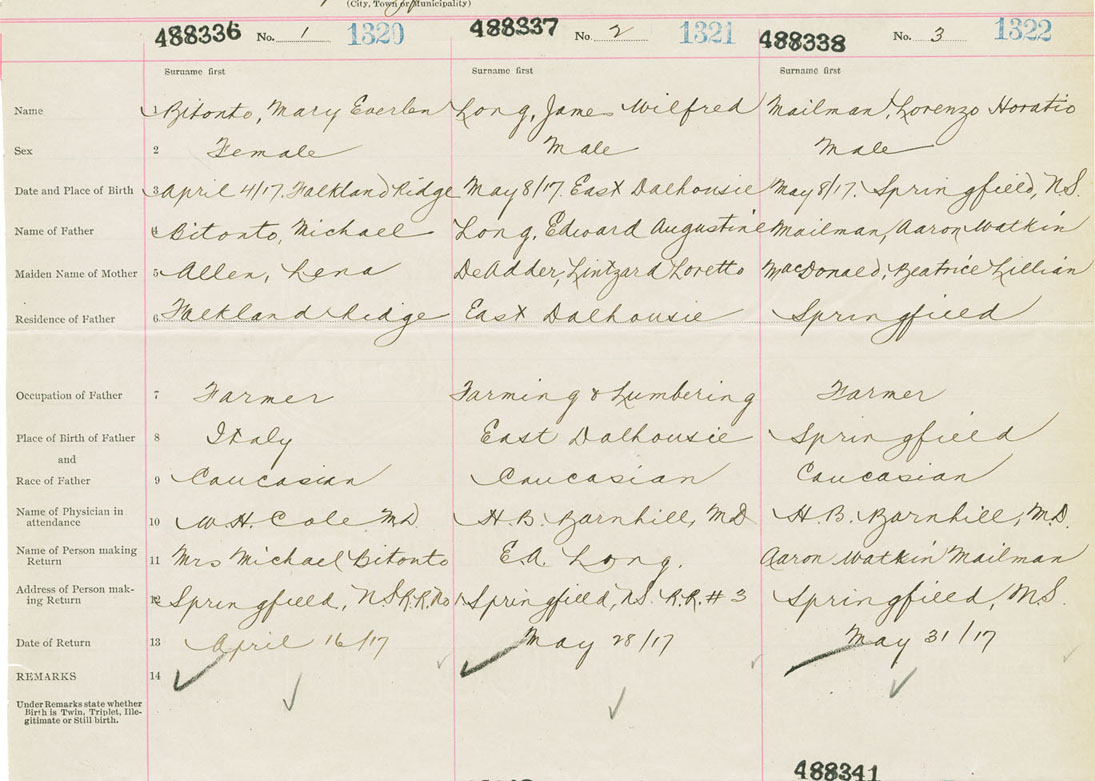 (City, Town or Municipality)
488336 No. 1 1320 488337 No. 2 1321 488338 No. 3 1322
Surname first Surname first Surname first
Name 1 Bitonto, Mary Everlen Long, James Wilfred Mailman, Lorenzo Horatio
Sex 2 Female Male Male
Date and Place of Birth 3 April 4/17. Falkland Ridge May 8/17. East Dalhousie May 8/17. Springfield, N.S.
Name of Father 4 Bitonto, Michael Long, Edward Augustine Mailman, Aaron Watkin
Maiden Name of Mother 5 Allen, Lena DeAdder, Lintzard Loretto MacDonald, Beatrice Lillian
Residence of Father 6 Falkland Ridge East Dalhousie Springfield
Occupation of Father 7 Farmer Farming & Lumbering Farmer
Place of Birth of Father 8 Italy East Dalhousie Springfield
and
Race of Father 9 Caucasian Caucasian Caucasian
Name of Physician in
attendance 10 W.H. Cole M.D. H.B. Barnhill, M.D. H.B. Barnhill, M.D.
Name of Person making
Return 11 Mrs Michael Bitonto E.A. Long. Aaron Watkin Mailman
Address of Person mak-
ing Return 12 Springfield, N.S. R.R. No Springfield, N.S. R.R. # 3 Springfield, N.S.
Date of Return 13 April 16/17 May 28/17 May 31/17
REMARKS 14
Under Remarks state whether
Birth is Twin, Triplet, Ille-
gitimate or Still birth.
488341